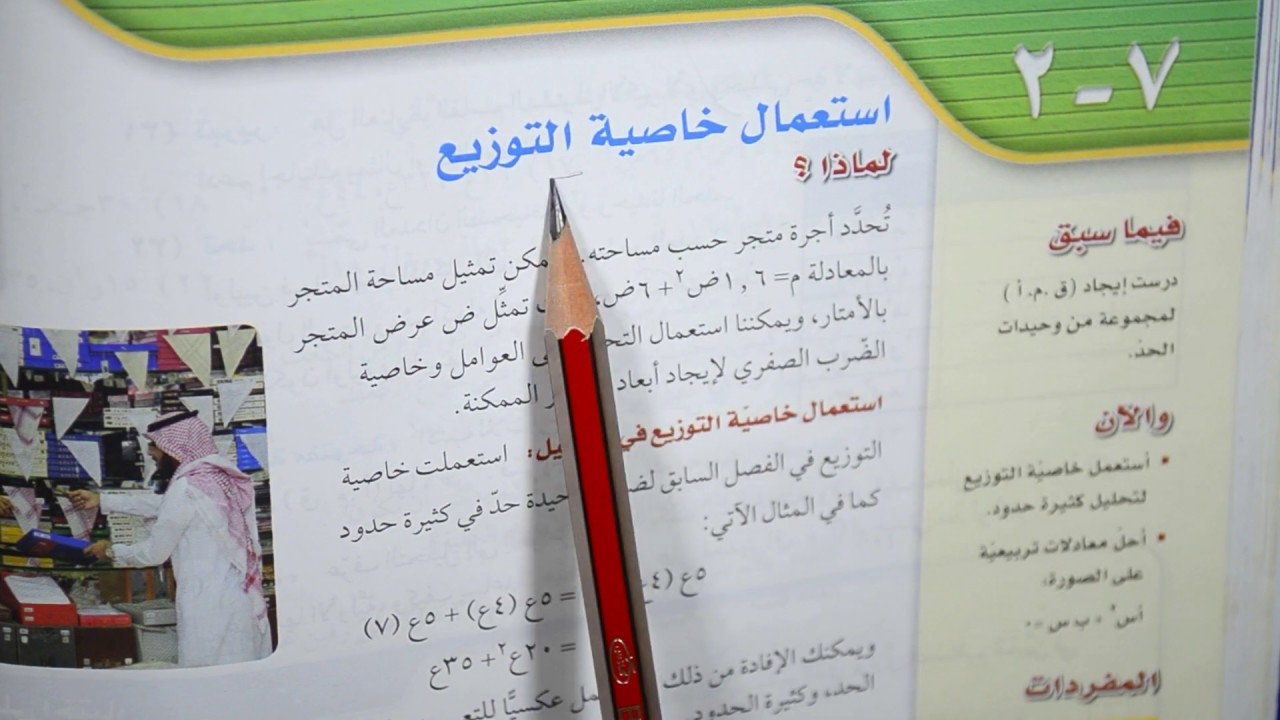 ٧-٢
استعمال خاصية التوزيع
لماذا ؟
تُحدَّد أجرة متجر حسب مساحته. تمثيل مساحة المتجر
بالمعادلة م= ١,٦ض٢+ ٦ض، تمثِّل ض عرض المتجر
بالأمتار، ويمكننا استعمال العوامل وخاصية
الضّرب الصفري لإيجاد الممكنة.
استعمال خاصيّة التوزيع في : استعملت خاصية
التوزيع في الفصل السابق حدّ في كثيرة حدود
كما في المثال الآتي:
٥ع (٤ع = ٥ع (٤ع) + ٥ع (٧)
= ٢٠ع٢+ ٣٥ع
ويمكنك الإفادة من ذلك عكسيًّا
الحد، وكثيرة
فيما سبق
درست إيجاد (ق .م.أ )
لمجموعة من وحيدات
الحدّ.
والآن
• أستعمل خاصيّة التوزيع
لتحليل كثيرة حدود.
• أحلّ معادلات تربيعيّة
على الصورة:
أس٢ + ب س = ٠
المفردات